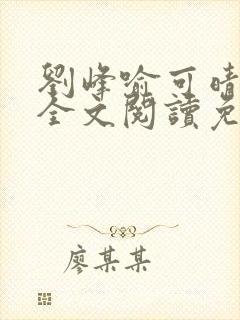 劉峰喻可晴
全文閱讀免
廖某某